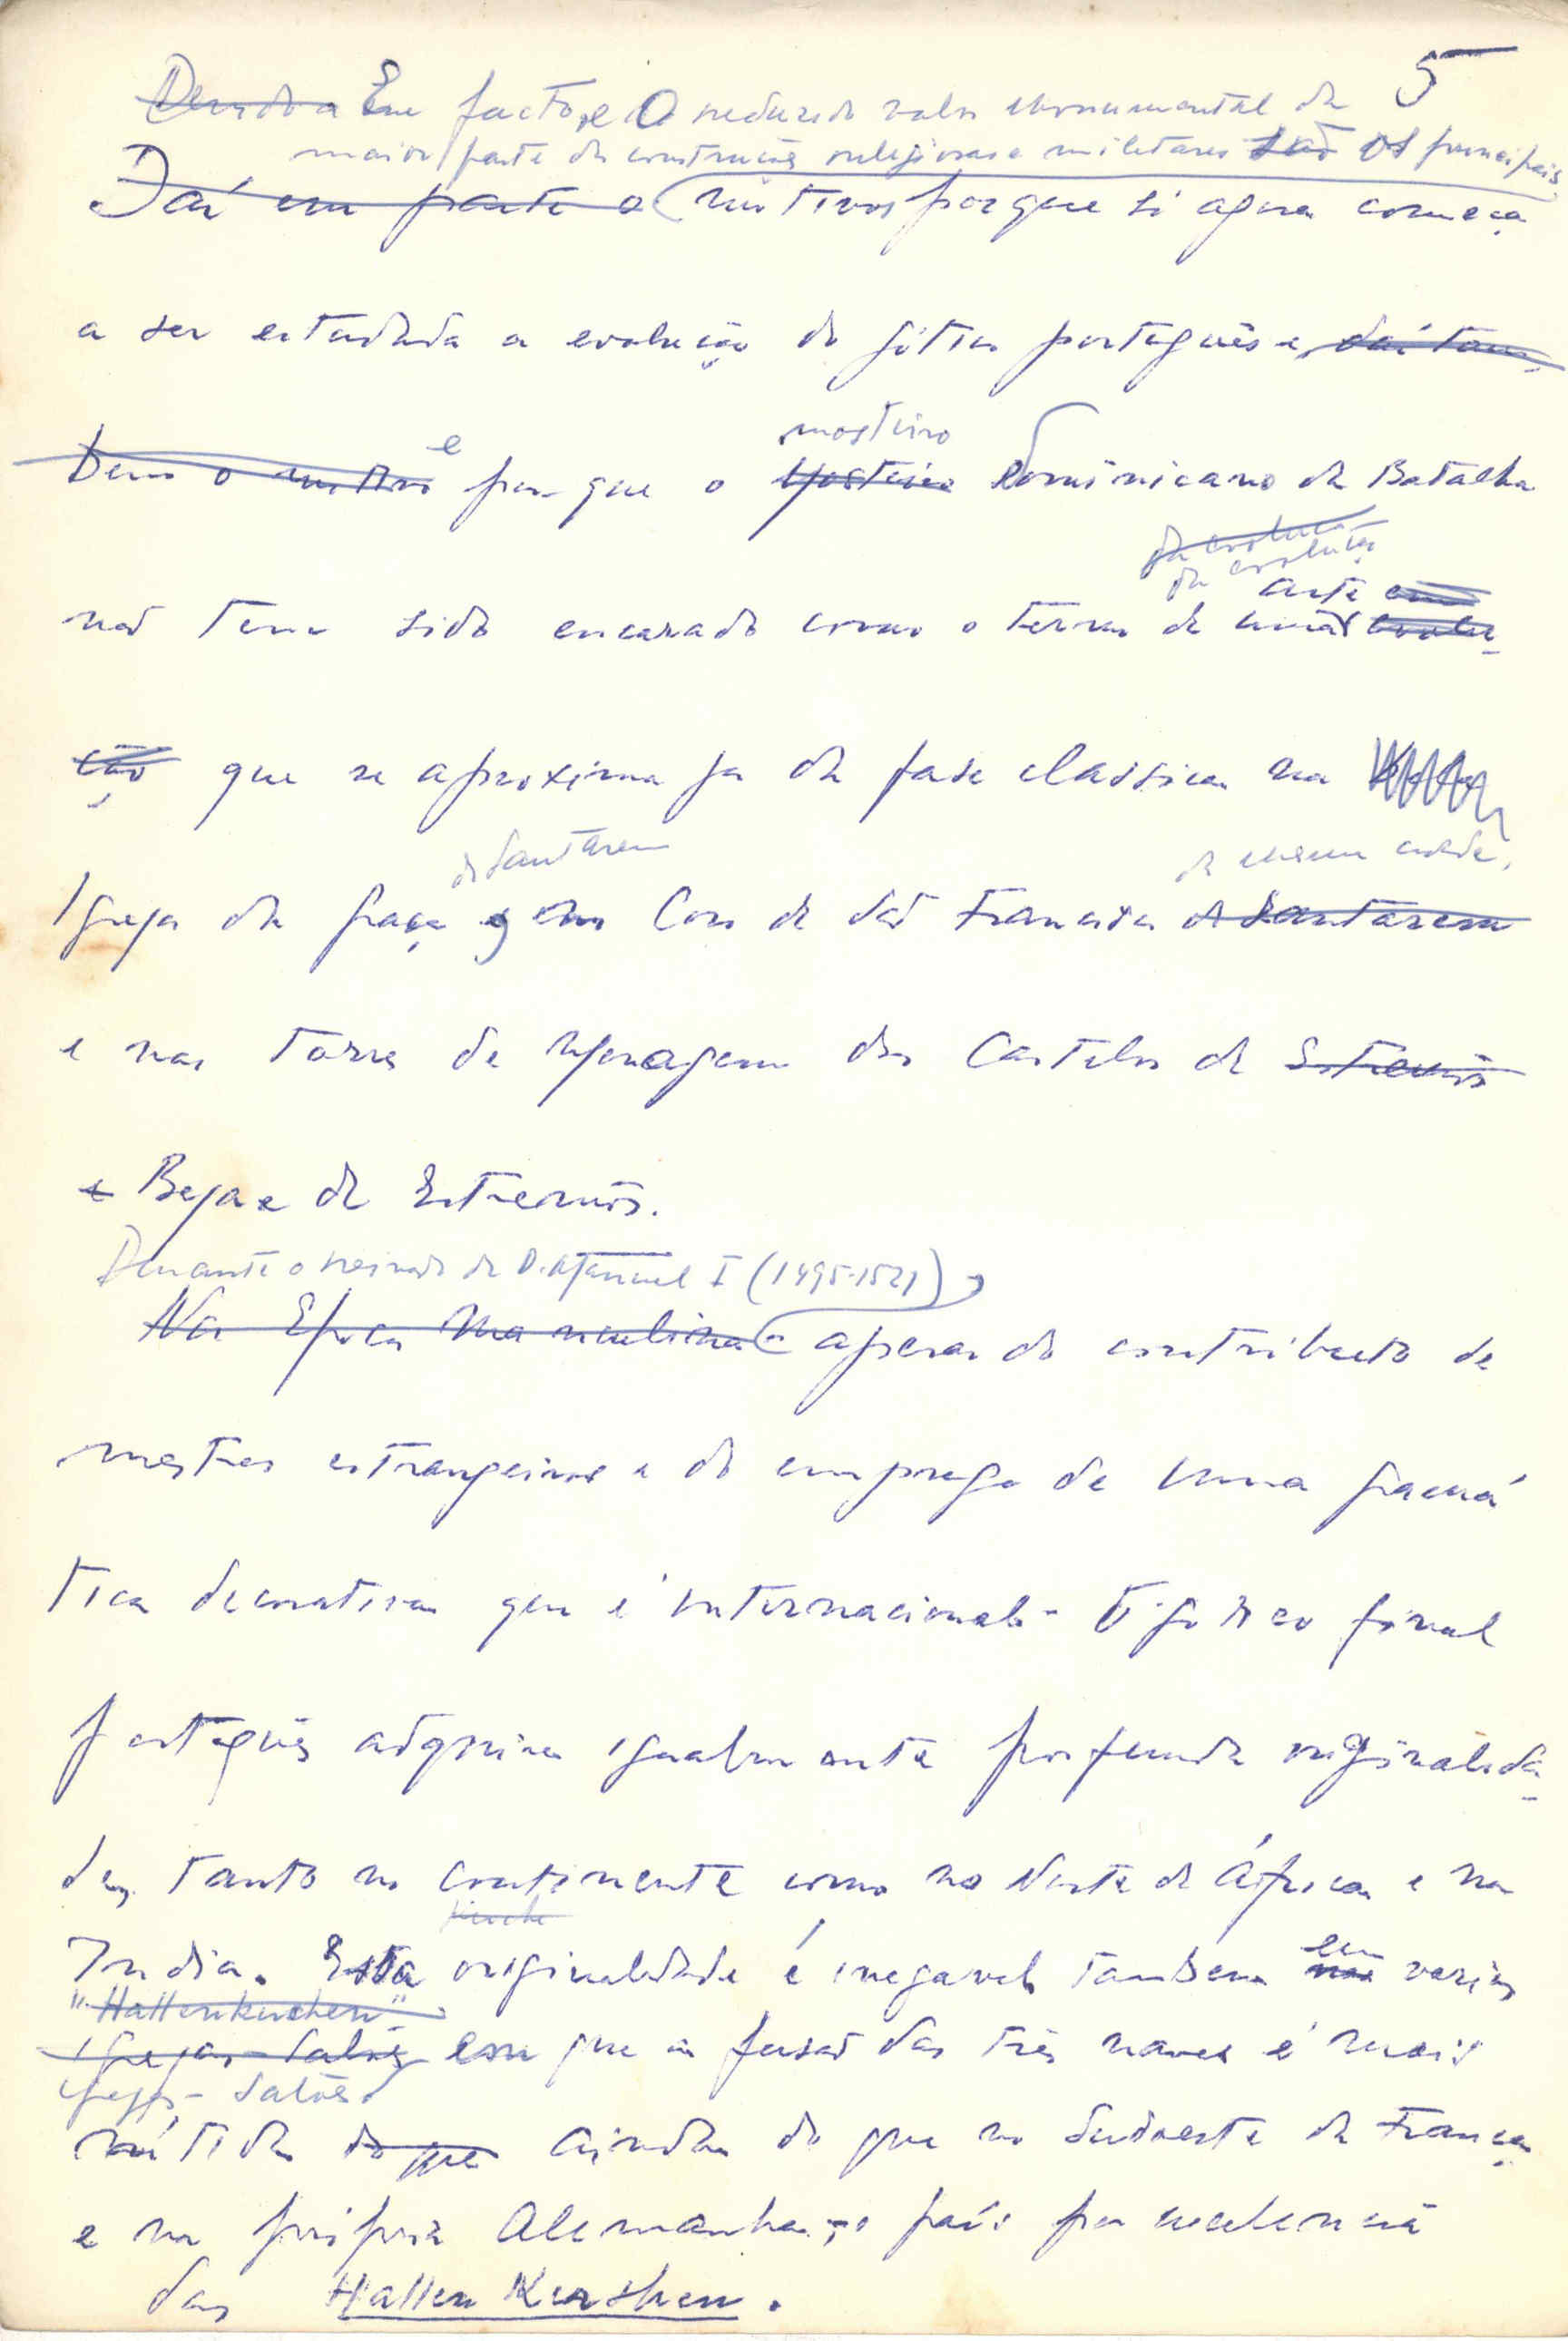 5
Em facto, e O reduzido valor monumental da
maior parte das construções religiosas e militares são os principais
Daí em parte o motivos porque só agora começa
a ser estudada a evolução do gótico português e, daí tam-
bem o motivo e por que o mosteiro Mosteiro dominicano da Batalha
da evolução
da evolução
não tem sido encarado como o termo de uma arte em evolu-
ção que se aproxima já da fase classica na
Igreja da Graça de Santarem, e no Coro de São Francisco da mesma cidade, de Santarem
e nas torres de Menagem dos Castelos de Estremós
e Beja e de Estremós.
Durante o reinado de D. Manuel I (1495-1521),
Na Epoca Manuelina - apesar do contributo de
mestres estrangeiros e do emprego de uma gramá
tica decorativa que é internacional - o gótico final
português adquirira igualmente profunda originalida-
de, tanto no continente como no Norte de África e na
India. Esta originalidade é inegavel tambem em nas varias
"Hallenkirchen"
igrejas-salões em que a fusão das três naves é mais
igrejas-salões
nítida do que ainda do que no Sudoeste da França
e na própria Alemanha, o país por excelencia
das Hallen Kirchen.